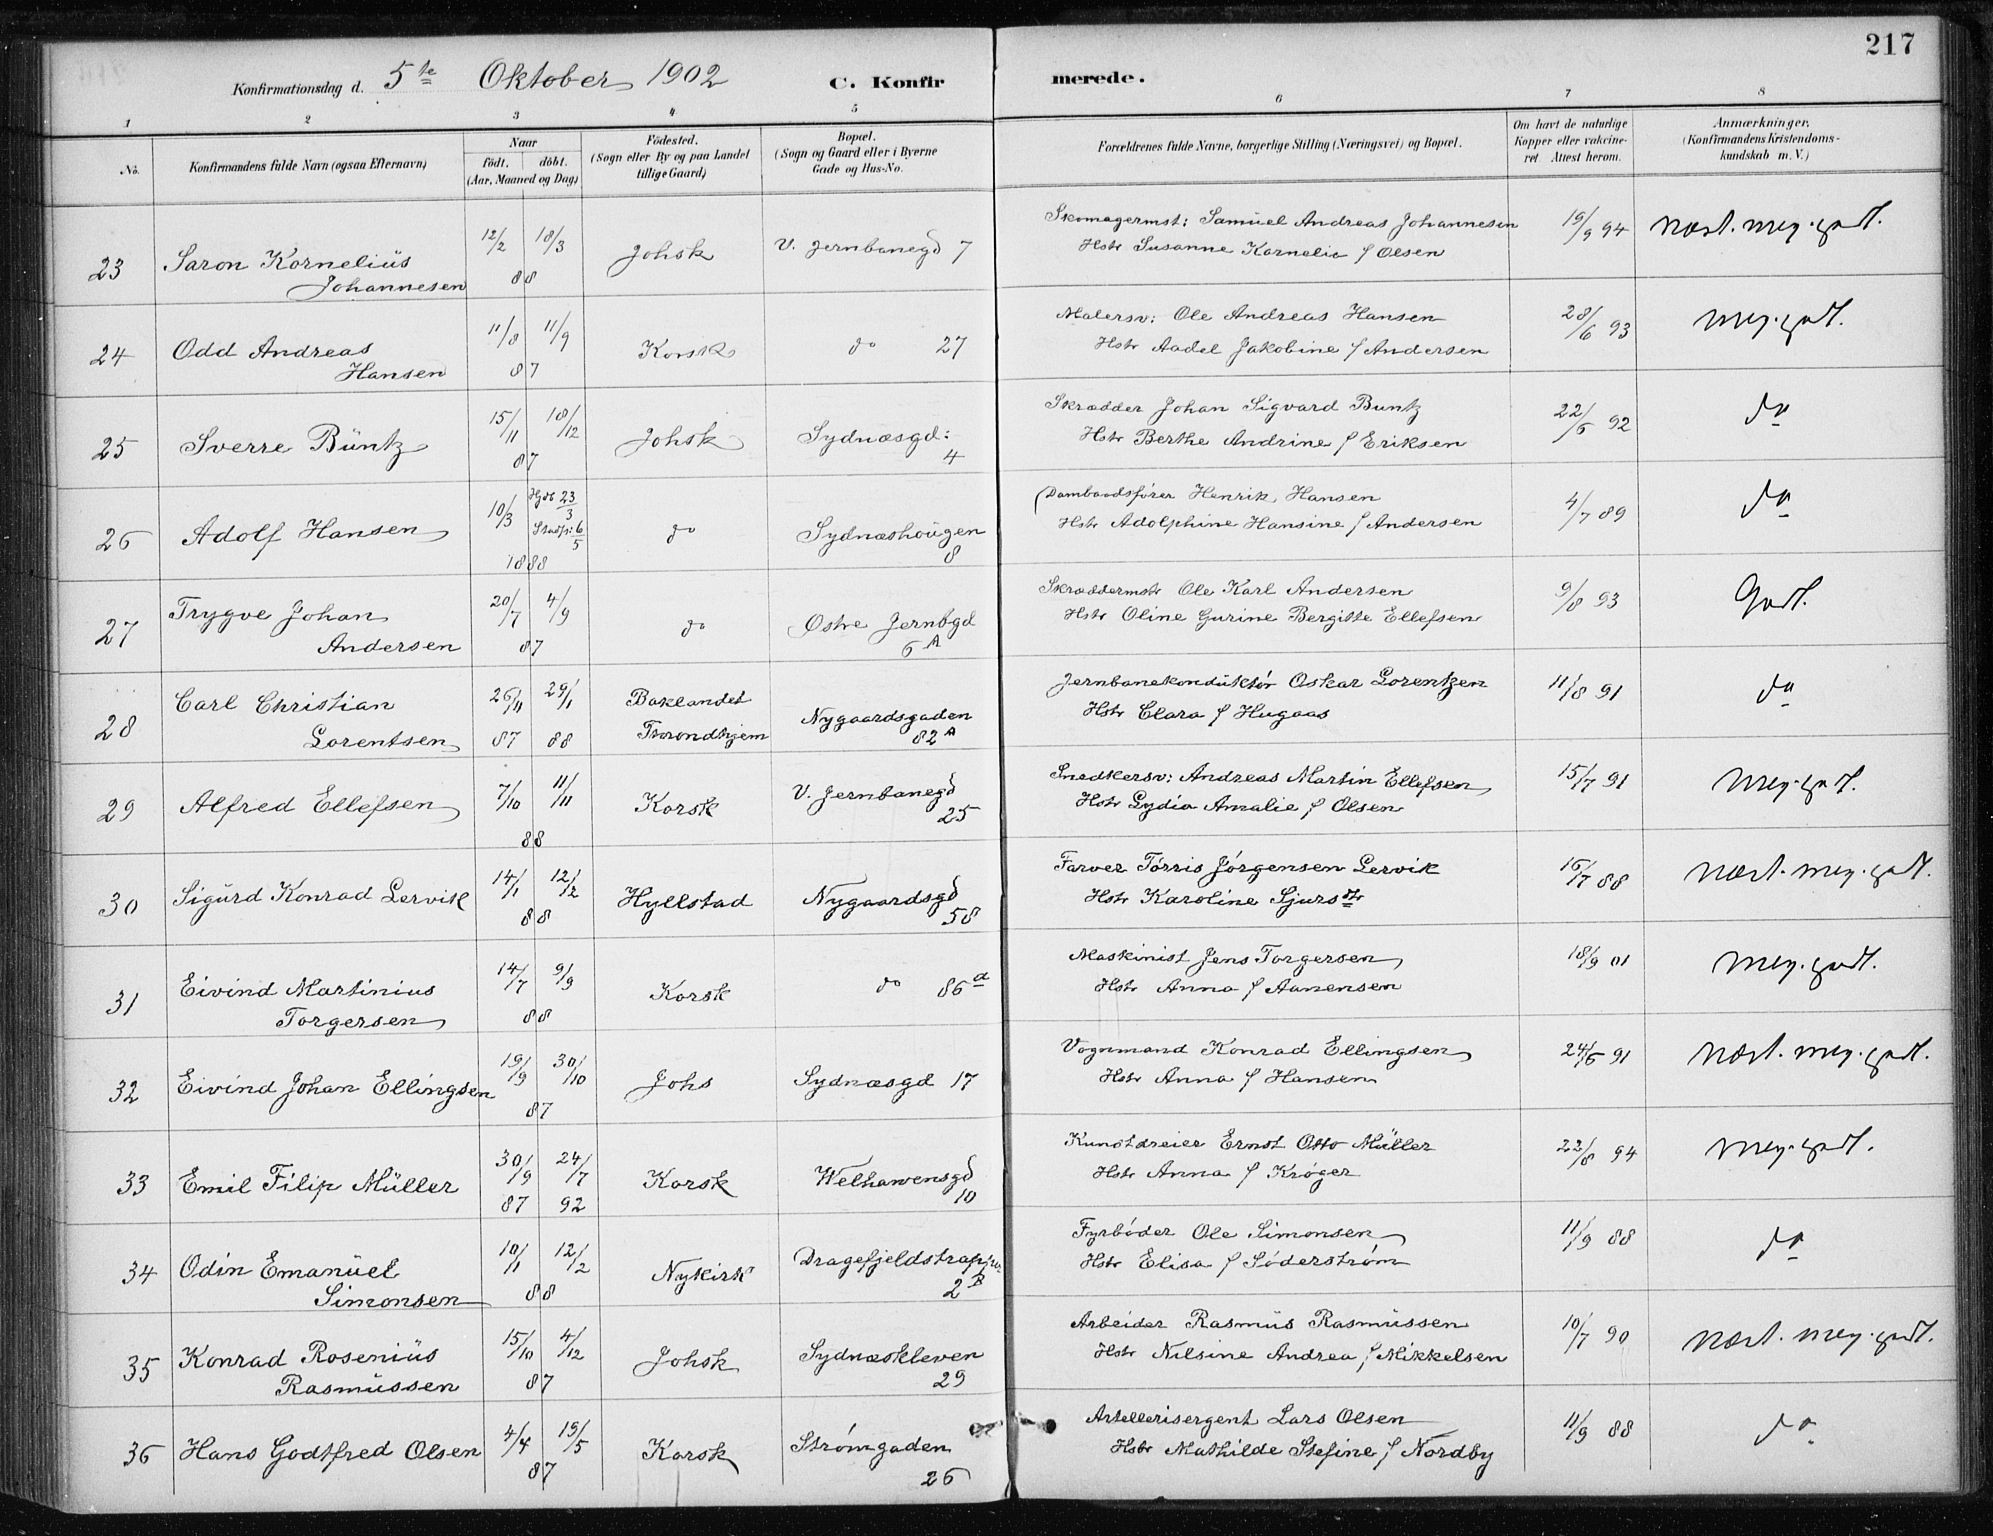 217
Konfirmationsdag d. 5te Oktober 1902 C. Konfirmerede.
1 2 3 4 5 6 7 8
No. Konfirmandens fulde Navn (ogsaa Efternavn) Naar født. døbt. (Aar, Maaned og Dag) Fødested. (Sogn eller By og paa Landet tillige Gaard) Bopæl. (Sogn og Gaard eller i Byerne Gade og Hus-No. Forældrenes fulde Navne, borgerlige Stilling (Næringsvei) og Bopæl. Om havt de naturlige Kopper eller vakcineret. Attest herom. Anmærkninger. (Konfirmandens Kristendomskundskab m. V.)
23 Saron Kornelius Johannesen 12/2 18/3 88 Johsk V. Jernbanegd 7 Skomagermst: Samuel Andreas Johannesen
Hstr Susanne Kornelia f Olsen 19/9 94 Næst. meg. godt.
24 Odd Andreas Hansen 11/8 11/9 87 Korsk do 27 Malersv: Ole Andreas Hansen
Hstr Aadel Jakobine f Andersen 28/6 93 Meg. godt.
25 Sverre Büntz 15/11 18/12 87 Johsk Sydnæsgd: 4 Skrædder Johan Sigvard Buntz
Hstr Berthe Andrine f Eriksen 22/6 92 do
26 Adolf Hansen 10/3 Hjdb 23/3 6/5 1888 do Sydnæshougen 8 Henrik Hansen
Hstr Adolphine Hansine f Andersen 4/7 89 do
27 Trygve Johan Andersen 20/7 4/9 87 do Østre Jernbgd 6A Skræddermstr Ole Karl Andersen
Hstr Oline Gurine Bergitte Ellefsen 9/8 93 Godt.
28 Carl Christian Lorentsen 26/11 87 29/1 88 Baklandet Throndhjem Nygaardsgaden 82A Jernbanekonduktør Oskar Lorentzen
Hstr Clara f Hugaas 11/8 91 do
29 Alfred Ellefsen 7/10 11/11 88 Korsk V. Jernbanegd 25 Snedkersv: Andreas Martin Ellefsen
Hstr Lydia Amalie f Olsen 15/7 91 Meg. godt.
30 Sigurd Konrad Lervik 14/1 12/2 88 Hyllstad Nygaardsgd 58 Farver Tørris Jørgensen Lervik
Hstr Karoline Sjursdtr 16/7 88 Næst. meg. godt.
31 Eivind Martinius Torgersen 14/7 9/9 88 Korsk do 86a Maskinist Jens Torgersen
Hstr Anna f Aanensen 18/9 01 Meg. godt.
32 Eivind Johan Ellingsen 19/9 30/10 87 Johs Sydnæsgd 17 Vognmand Konrad Ellingsen
Hstr Anna f Hansen 24/6 91 Næst. meg. godt.
33 Emil Filip Müller 30/9 87 24/7 92 Korsk Welhavensgd 10 Kunstdreier Ernst Otto Müller
Hstr Anna f Krøger 22/8 94 Meg. godt.
34 Odin Emanuel Simonsen 10/1 12/2 88 Nykirk 2B Fyrbøder Ole Simonsen
Hstr Elisa f Søderstrøm 11/9 88 do
35 Konrad Rosenius Rasmussen 15/10 4/12 87 Johsk Sydnæskleven 29 Arbeider Rasmus Rasmussen
Hstr Nilsine Andrea f Mikkelsen 10/7 90 Næst. meg. godt.
36 Hans Godtfred Olsen 4/4 19/5 87 Korsk Strømgaden 26 Artellerisergent Lars Olsen
Hstr Mathilde Stefine f Nordby 11/9 88 do